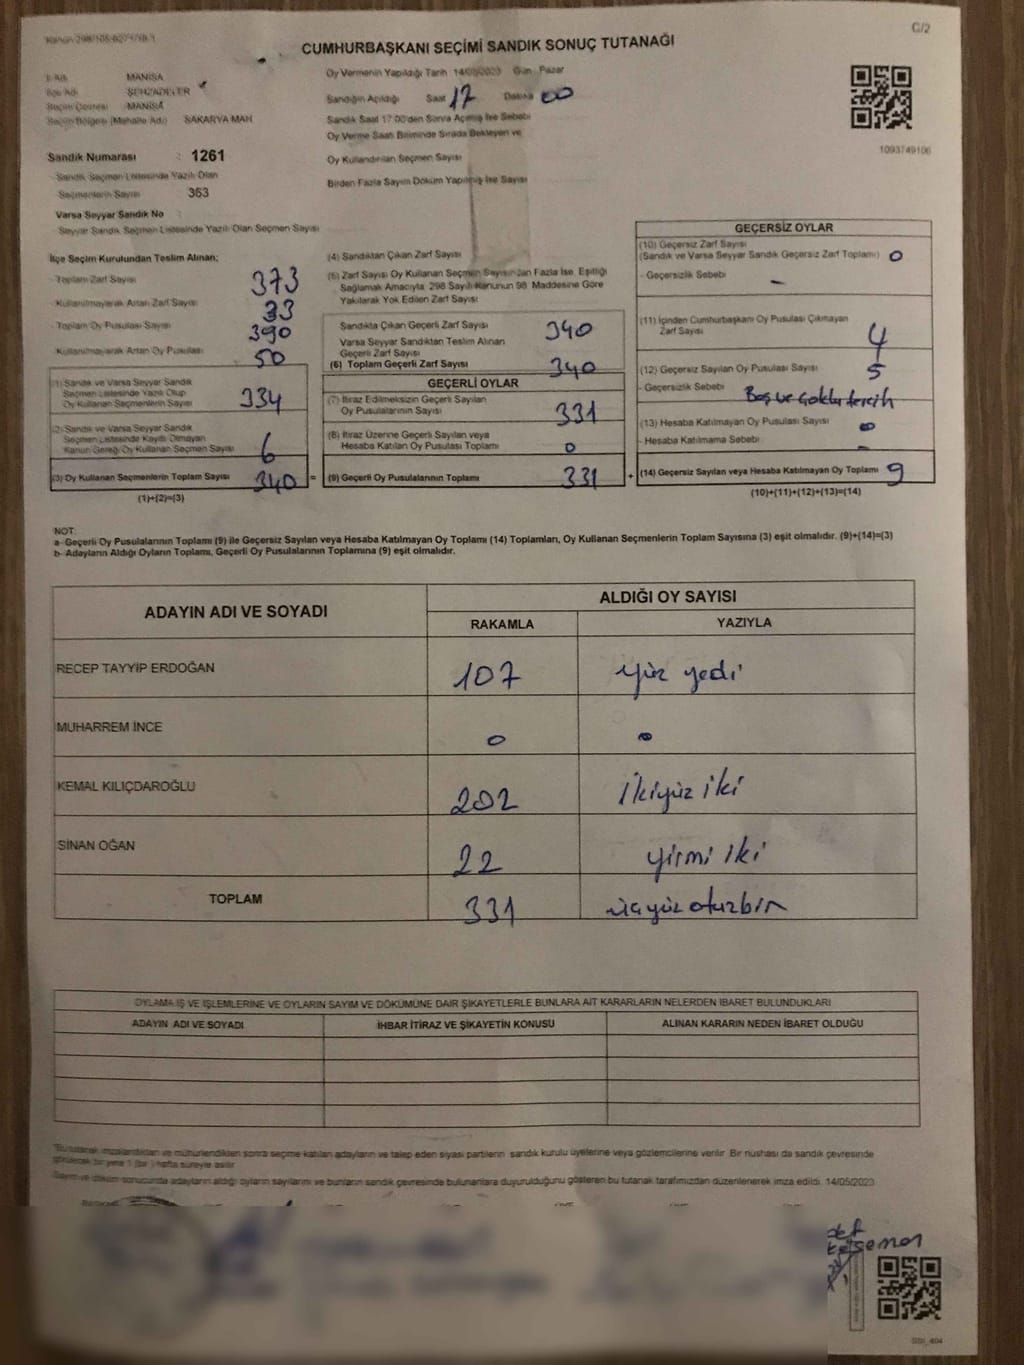 C/2
CUMHURBAŞKANI SEÇİMİ SANDIK SONUÇ TUTANAĞI
İl Adı MANİSA
İlçe Adı ŞEHZADELER
Seçim Çevresi MANİSA
Seçim Bölgesi (Mahalle Adı) SAKARYA MAH
Sandık Numarası : 1261
Sandık Seçmen Listesinde Yazılı Olan
Seçmenlerin Sayısı 363
Varsa Seyyar Sandık No
Seyyar Sandık Seçmen Listesinde Yazılı Olan Seçmen Sayısı
Oy Vermenin Yapıldığı Tarih 14/05/2023 Gün : Pazar
Sandığın Açıldığı Saat 17 Dakika 00
Sandık Saat 17:00'den Sonra Açılmış İse Sebebi
Oy Verme Saati Bitiminde Sırada Bekleyen ve
Oy Kullandırılan Seçmen Sayısı
Birden Fazla Sayım Döküm Yapılmış İse Sayısı
1093749106
İlçe Seçim Kurulundan Teslim Alınan;
- Toplam Zarf Sayısı 373
- Kullanılmayarak Artan Zarf Sayısı 33
- Toplam Oy Pusulası Sayısı 390
- Kullanılmayarak Artan Oy Pusulası 50
(1) Sandık ve Varsa Seyyar Sandık
Seçmen Listesinde Yazılı Olup
Oy Kullanan Seçmenlerin Sayısı 334
(2) Sandık ve Varsa Seyyar Sandık
Seçmen Listesinde Kayıtlı Olmayan
Kanun Gereği Oy Kullanan Seçmen Sayısı 6
(3) Oy Kullanan Seçmenlerin Toplam Sayısı 340 =
(1)+(2)=(3)
(4) Sandıktan Çıkan Zarf Sayısı
(5) Zarf Sayısı Oy Kullanan Seçmen Sayısından Fazla İse, Eşitliği
Sağlamak Amacıyla, 298 Sayılı Kanunun 98. Maddesine Göre
Yakılarak Yok Edilen Zarf Sayısı
Sandıkta Çıkan Geçerli Zarf Sayısı 340
Varsa Seyyar Sandıktan Teslim Alınan
Geçerli Zarf Sayısı
(6) Toplam Geçerli Zarf Sayısı 340
GEÇERLİ OYLAR
(7) İtiraz Edilmeksizin Geçerli Sayılan
Oy Pusulalarının Sayısı 331
(8) İtiraz Üzerine Geçerli Sayılan veya
Hesaba Katılan Oy Pusulası Toplamı 0
(9) Geçerli Oy Pusulalarının Toplamı 331 +
GEÇERSİZ OYLAR
(10) Geçersiz Zarf Sayısı
(Sandık ve Varsa Seyyar Sandık Geçersiz Zarf Toplamı) 0
- Geçersizlik Sebebi -
(11) İçinden Cumhurbaşkanı Oy Pusulası Çıkmayan
Zarf Sayısı 4
(12) Geçersiz Sayılan Oy Pusulası Sayısı 5
- Geçersizlik Sebebi Boş ve Çoklu tercih
(13) Hesaba Katılmayan Oy Pusulası Sayısı 0
- Hesaba Katılmama Sebebi -
(14) Geçersiz Sayılan veya Hesaba Katılmayan Oy Toplamı 9
(10)+(11)+(12)+(13)=(14)
NOT:
a- Geçerli Oy Pusulalarının Toplamı (9) ile Geçersiz Sayılan veya Hesaba Katılmayan Oy Toplamı (14) Toplamları, Oy Kullanan Seçmenlerin Toplam Sayısına (3) eşit olmalıdır. (9)+(14)=(3)
b- Adayların Aldığı Oyların Toplamı, Geçerli Oy Pusulalarının Toplamına (9) eşit olmalıdır.
ADAYIN ADI VE SOYADI
ALDIĞI OY SAYISI
RAKAMLA YAZIYLA
RECEP TAYYİP ERDOĞAN 107 yüz yedi
MUHARREM İNCE 0 0
KEMAL KILIÇDAROĞLU 202 İkiyüz iki
SİNAN OĞAN 22 yirmi iki
TOPLAM 331 üçyüz otuzbir
OYLAMA İŞ VE İŞLEMLERİNE VE OYLARIN SAYIM VE DÖKÜMÜNE DAİR ŞİKAYETLERLE BUNLARA AİT KARARLARIN NELERDEN İBARET BULUNDUKLARI
ADAYIN ADI VE SOYADI İHBAR İTİRAZ VE ŞİKAYETİN KONUSU ALINAN KARARIN NEDEN İBARET OLDUĞU
*Bu tutanak imzalandıktan ve mühürlendikten sonra seçime katılan adayların ve talep eden siyasi partilerin sandık kurulu üyelerine veya gözlemcilerine verilir. Bir nüshası da sandık çevresinde
görülecek bir yere 1 (bir) hafta süreyle asılır.
Sayım ve döküm sonucunda adayların aldığı oyların sayılarını ve bunların sandık çevresinde bulunanlara duyurulduğunu gösteren bu tutanak tarafımızdan düzenlenerek imza edildi. 14/05/2023